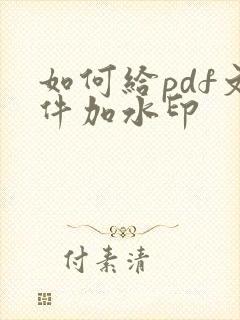 如何给pdf文
件加水印
付素清